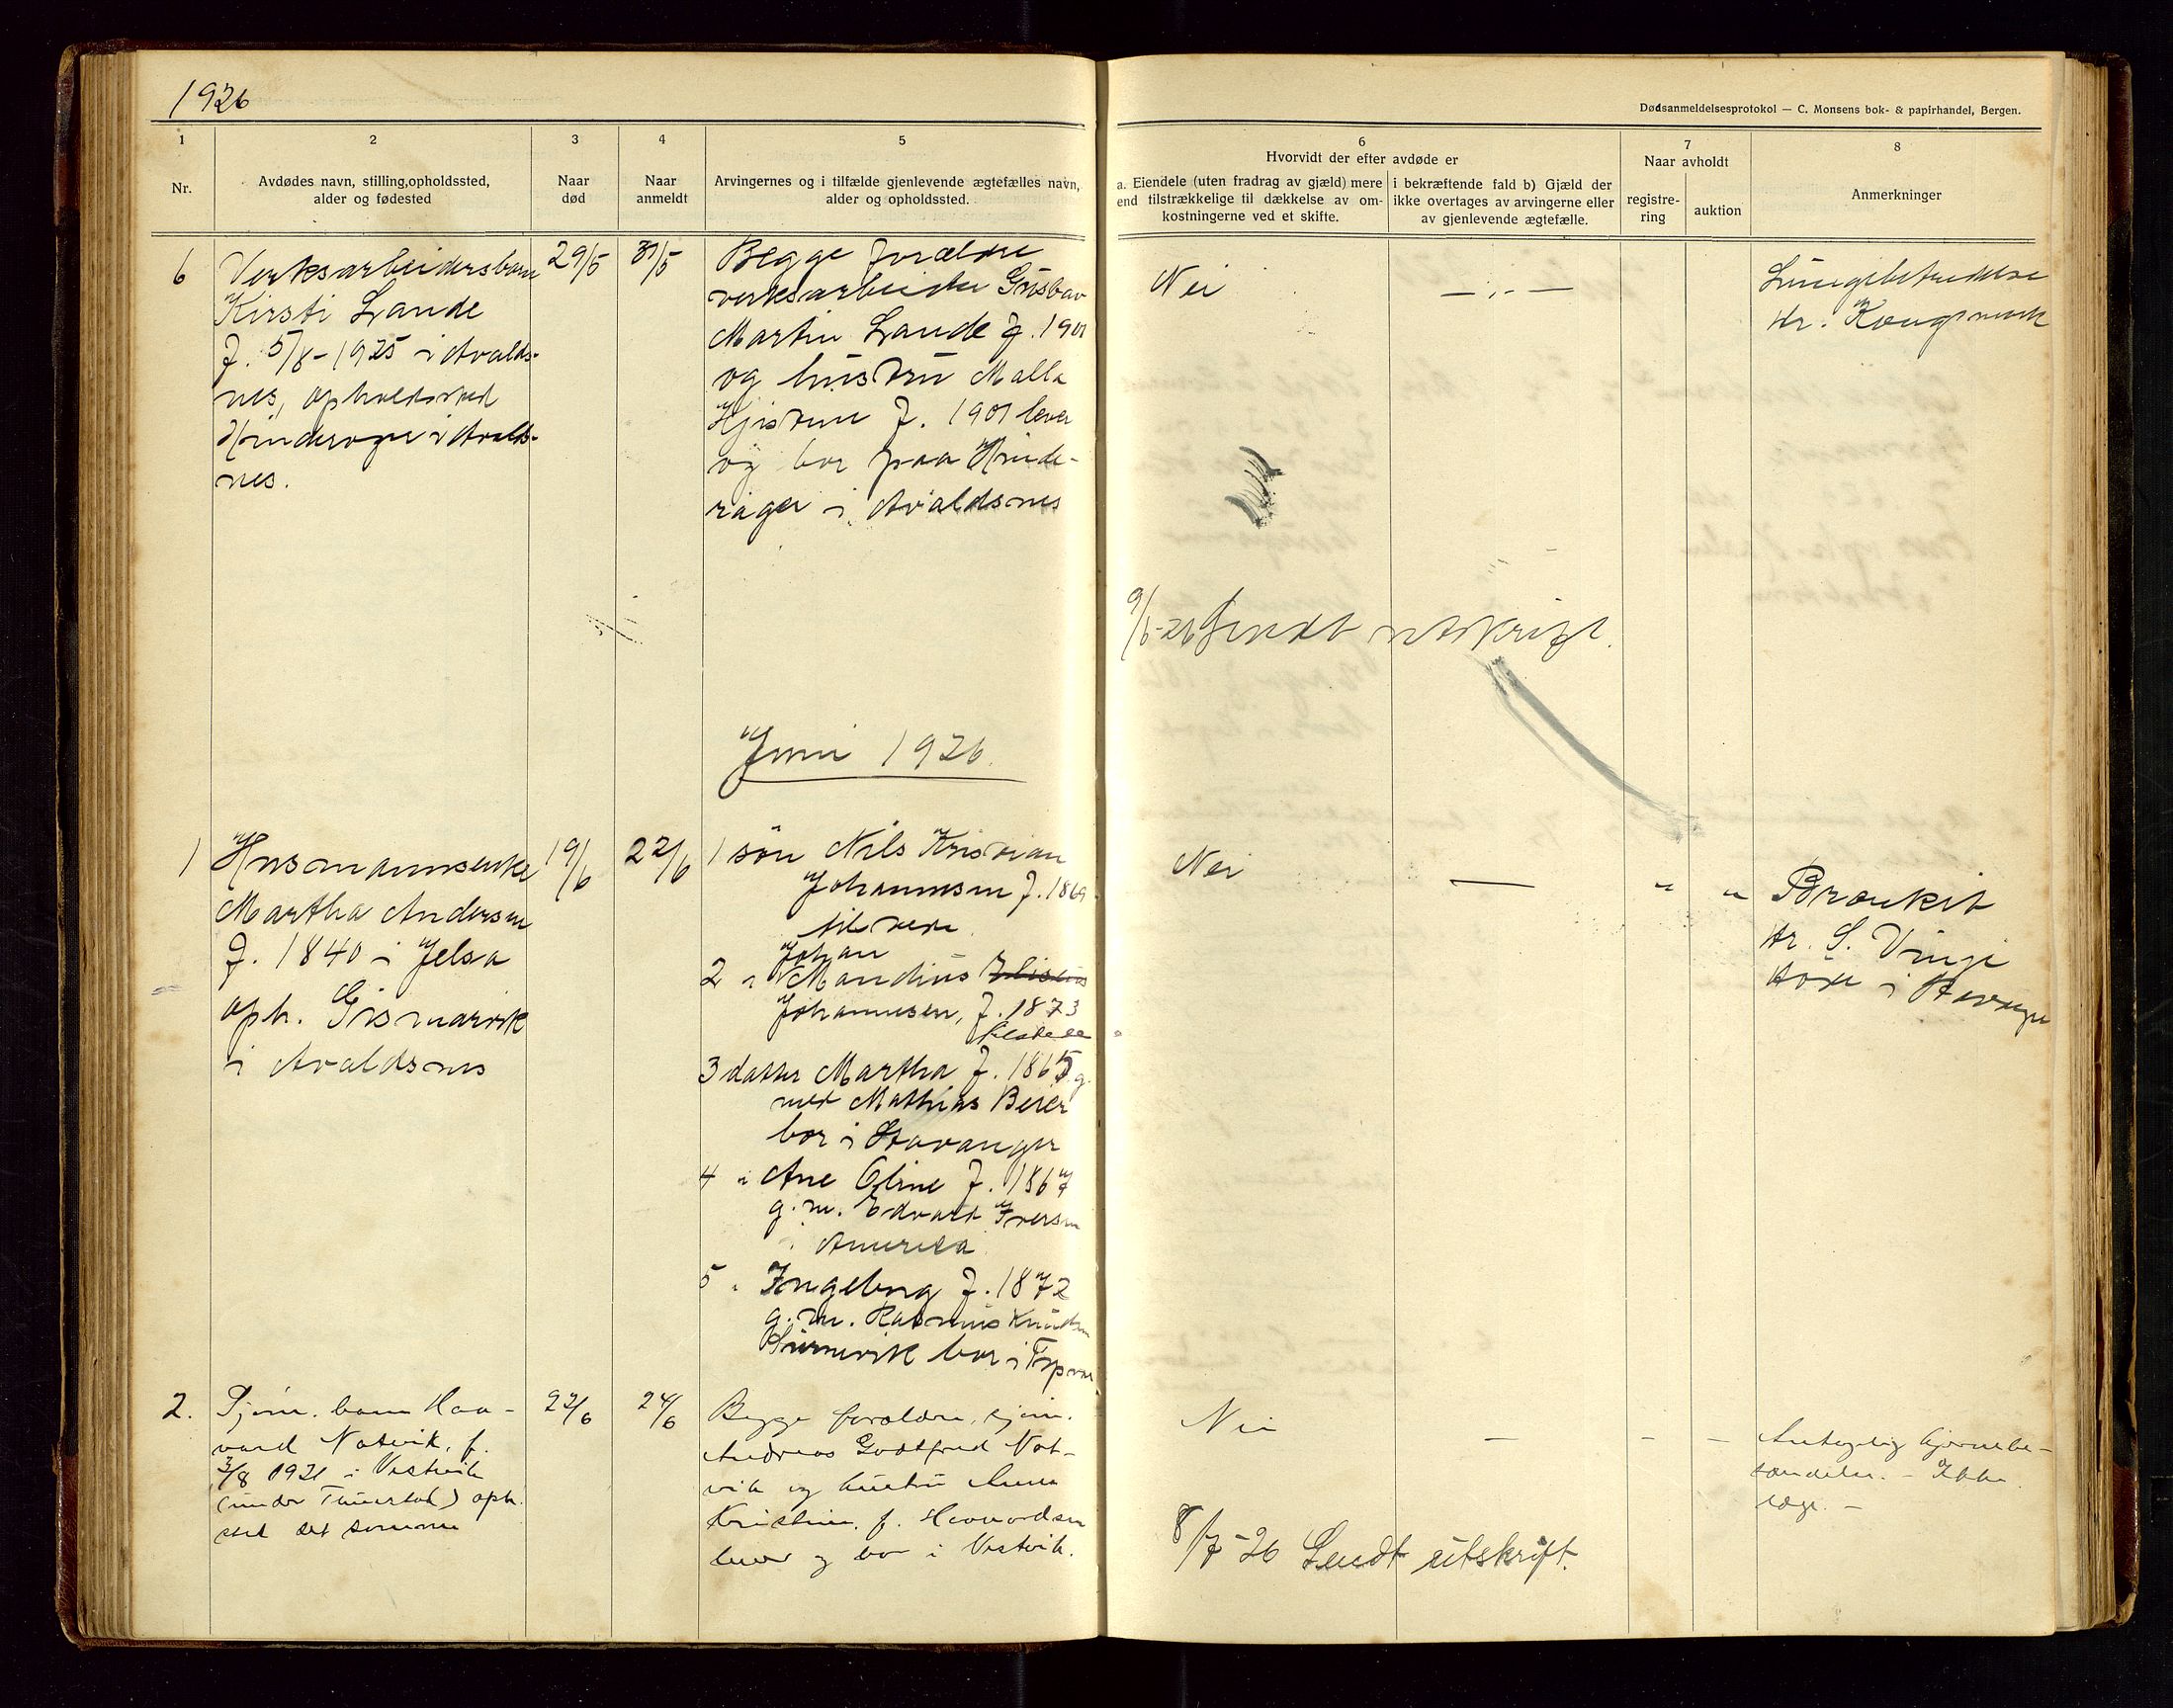 1926
Dødsanmeldelsesprotokol — C. Monsens bok- & papirhandel, Bergen.
1
2
3
4
5
6
7
8
Nr.
Avdødes navn, stilling,opholdssted,
alder og fødested
Naar
død
Naar
anmeldt
Arvingernes og i tilfælde gjenlevende ægtefælles navn,
alder og opholdssted.
Hvorvidt der efter avdøde er
a. Eiendele (uten fradrag av gjæld) mere
end tilstrækkelige til dækkelse av om-
kostningerne ved et skifte.
i bekræftende fald b) Gjæld der
ikke overtages av arvingerne eller
av gjenlevende ægtefælle.
Naar avholdt
registre-
ring
auktion
Anmerkninger
6
Verksarbeidersbarn
Kirsti Lande
f. 5/8-1925 i Avalds-
nes, opholdssted
i Avalds-
nes.
29/5
31/5
Begge forældre
verksarbeider Gustav
Martin Lande f. 1901
og hustru Malla
f. 1901 lever
og bor paa
i Avaldsnes
Nei
— „ —
Lungebetendelse
dr. Kongsmark
9/6-26 Sendt utskrift.
Juni 1926.
1
Husmannsenke
Martha Andersen
f. 1840 i Jelsa
oph. Gismarvik
i Avaldsnes
19/6
22/6
1 søn Nils Kristian
Johannesen f. 1869
tilstede
Johan
2 " Mandius
Johannesen, f. 1873
tilstede
3 datter Martha f. 1865 g.
med Mathias Beier
bor i Stavanger
4 " Ane Oline f. 1867
g. m. Edvard Iversen
i Amerika
5 " Ingeborg f. 1872
g. m. Rasmus Knudsen
bor i Tysvær
Nei
—
"
"
Bronkit
dr. S. Vinje
døde i Stavanger
2.
Tjen. barn Haa-
vard Notvik, f.
3/8 1921 i Vestvik
(under ) oph.
sted det samme
22/6
24/6
Begge forældre,
Andreas Godtfred Not-
vik og hustru Anna
Kristine, f. Haavardsen
lever og bor i Vestvik.
Nei
—
—
—
Antagelig hjernebe-
tændelse. - Ikke
læge. -
8/7-26 Sendt utskrift.